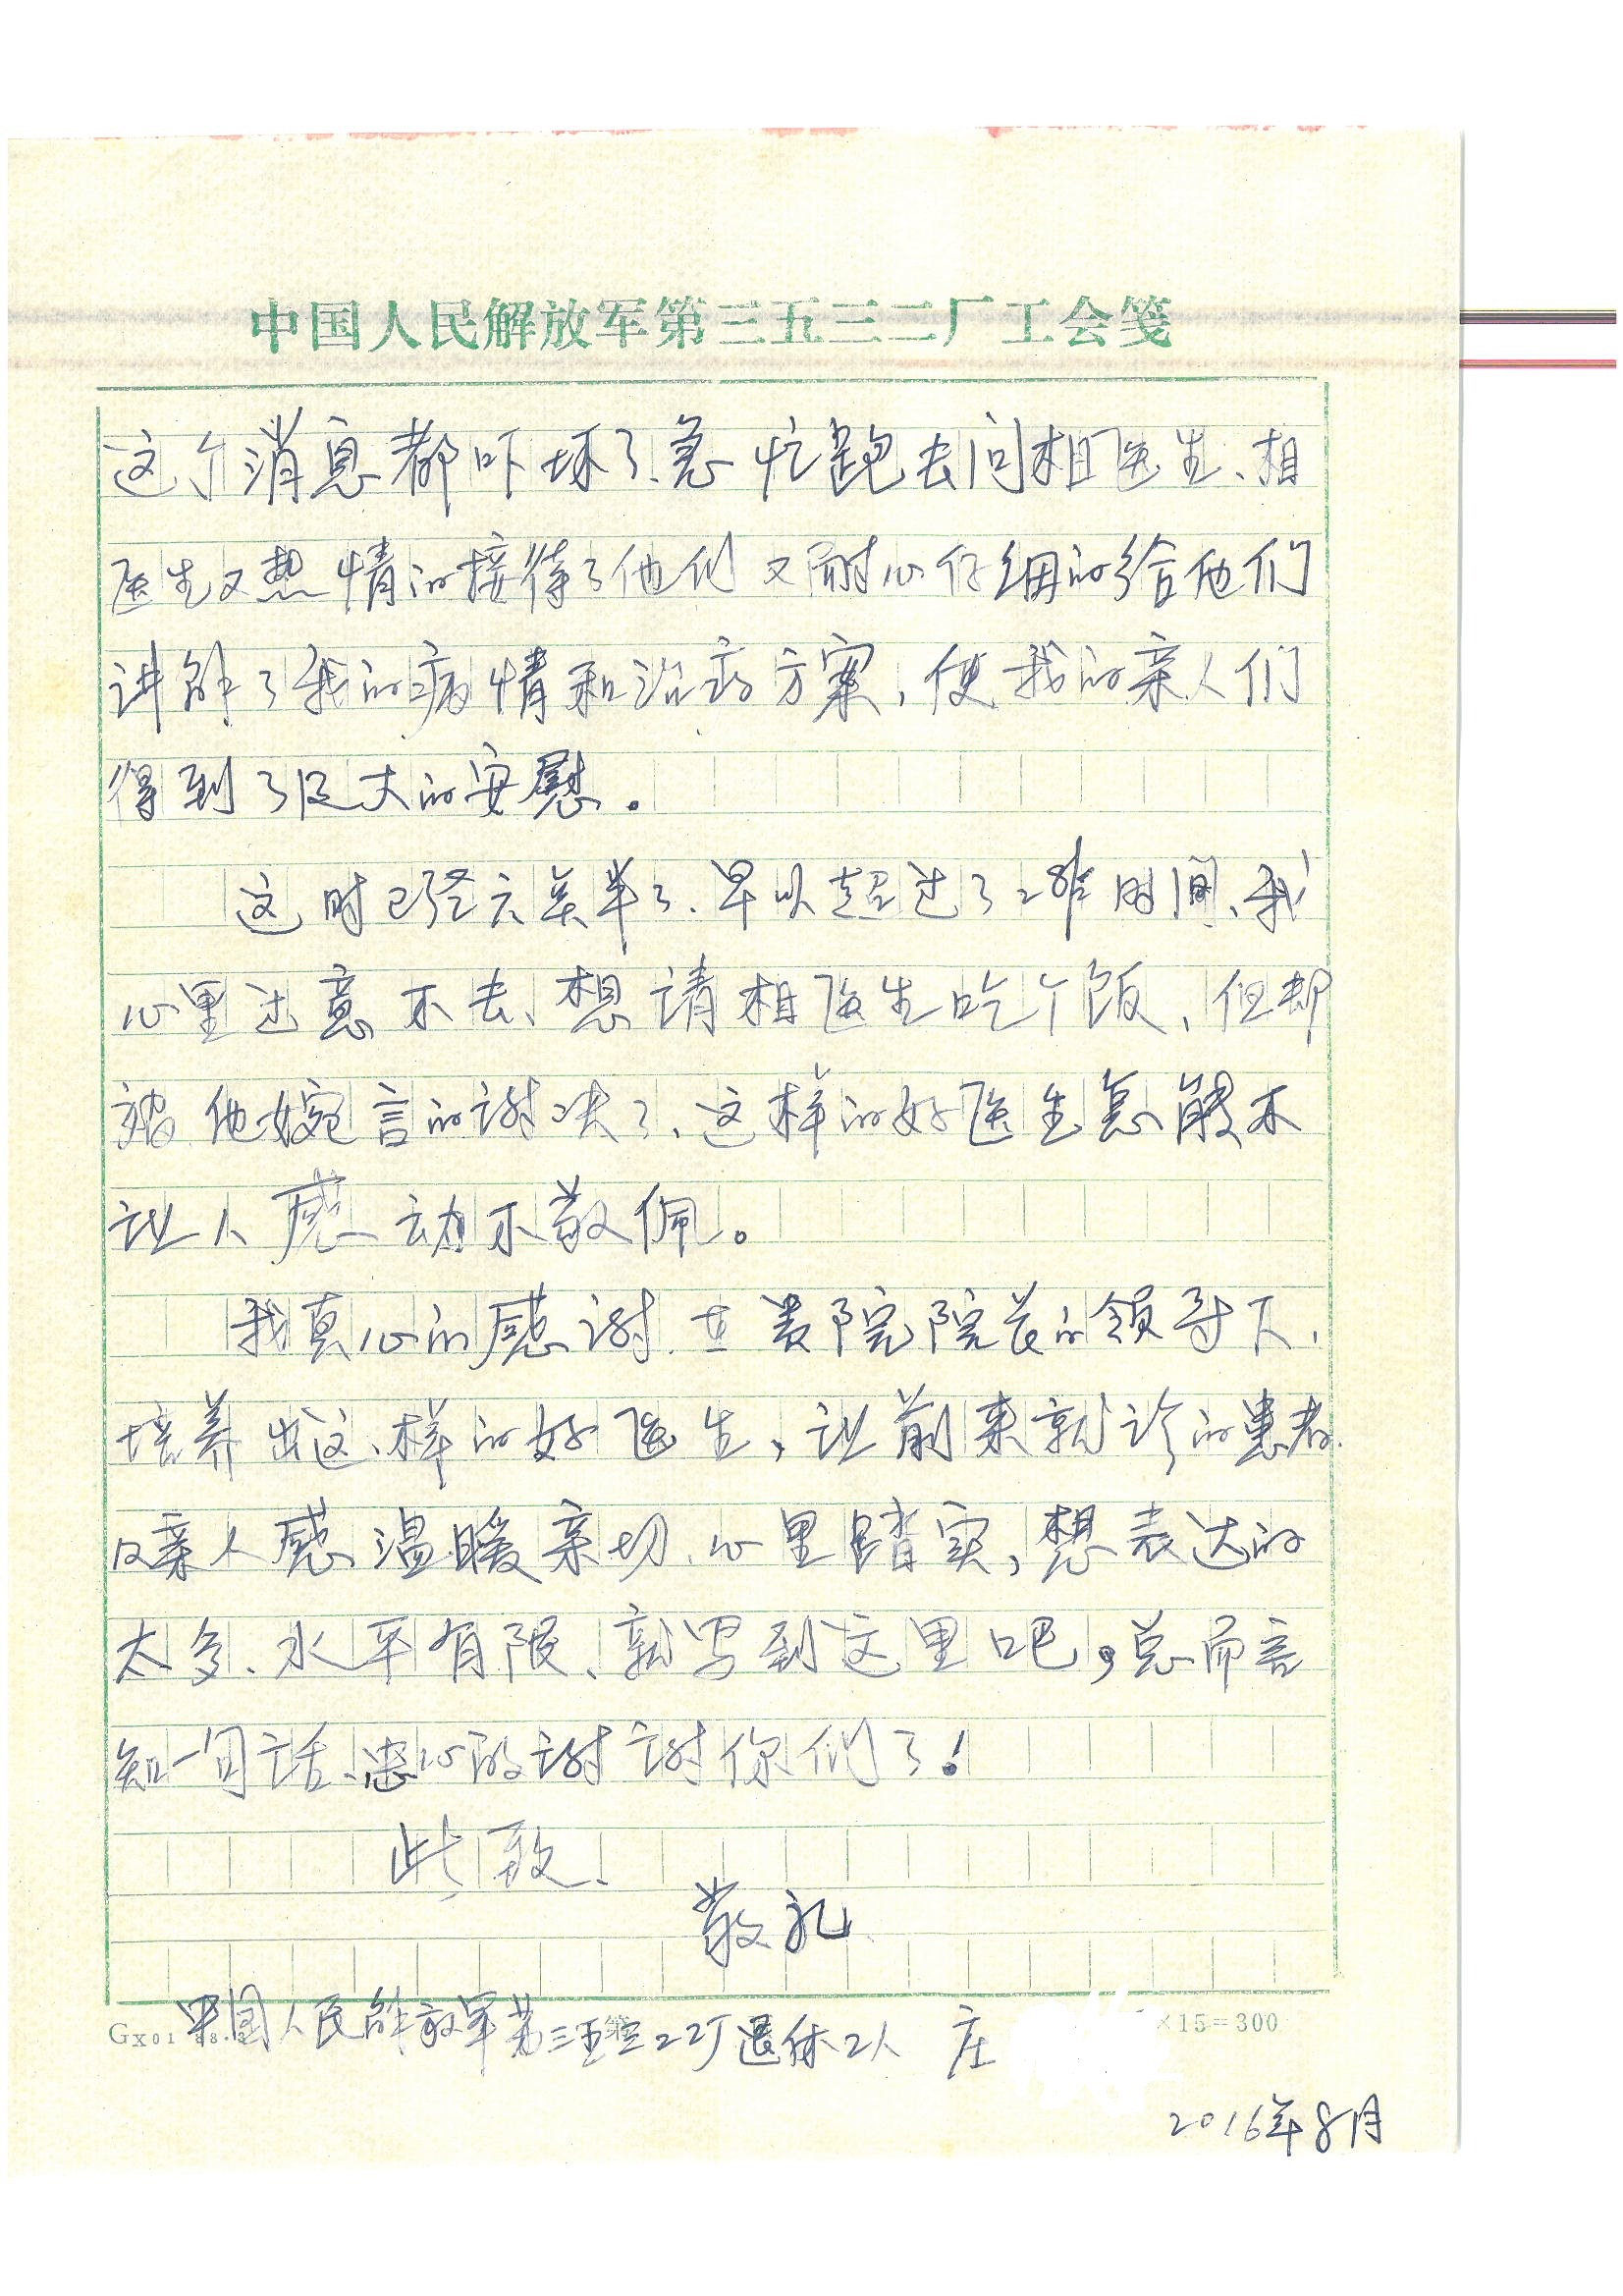 中国人民解放军第三五三二厂工会笺
这个消息都吓坏了、急忙跑去问相医生、相
医生又热情的接待了他们又耐心仔细的给他们
讲解了我的病情和治疗方案,使我的亲人们
得到了及大的安慰。
这时已经六点半了、早以超过了工作时间、我
心里过意不去、想请相医生吃个饭、但却
被他婉言的谢决了、这样的好医生怎能不
让人感动不敬佩。
我真心的感谢、在贵院院长的领导下、
培养出这样的好医生,让前来就诊的患者
及亲人感温暖亲切、心里踏实,想表达的
太多、水平有限、就写到这里吧,总而言
知一句话、忠心的谢谢你们了!
此致、
敬礼
中国人民解放军第三五三二工厂退休工人 庄
Gx01 88.3 第 ×15=300
2016年8月